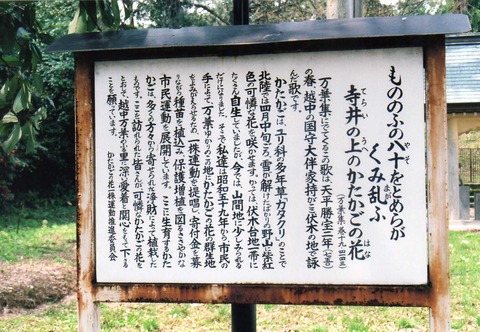 もののふの八十をとめらが
やそ
くみ乱ふ
まが
寺井の上のかたかごの花
てらい
うへ
はな
(万葉集 巻十九 四一四三)
万葉集にでてくるこの歌は、天平勝宝二年(七五〇)
の春、越中の国守大伴家持がこ伏木の地で詠
んだ歌です。
かたかごは、ユリ科の多年草「カタクリ」のことで
北陸では四月中旬ごろ、雪が解けたばかりの野山に紫紅
色の可憐な花を咲かせます。かつては、伏木台地一帯に
たくさん自生していましたが、今では、山間地で少しみられる
だけになりました。そこで私達は昭和五十九年から市民の
手によって万葉ゆかりのこの地に「かたかごの花」群生地
をよみがえらせるための「一株運動」を提唱し、寄付金を募
りながら種苗を植込み、保護増殖を図るささやかな
市民運動を展開しています。ここに生育するかた
かごは、多くの方々から寄せられた浄財によって植栽した
ものです。ここを訪れられた皆さんが「可憐なかたかごの花」を
とおして、越中万葉の里に深い愛着と関心をもって下さる
ことを願っています。
かたかごの花一株運動推進委員会